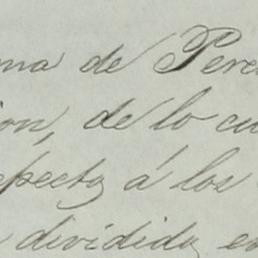 ma de Pere
ion, de lo cu
specto á los
dividido, en